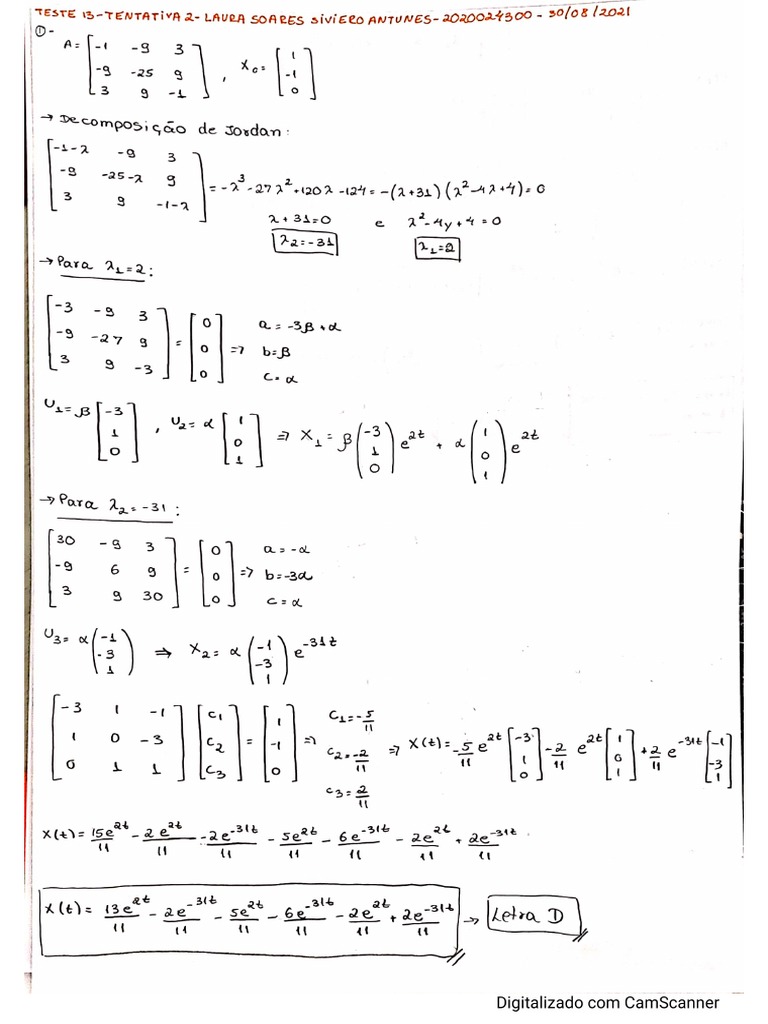 TESTE 13-TENTATIVA 2- LAURA SOARES SIVIERO ANTUNES-2020024300 - 30/08/2021
①-
A= [-1 -9 3
-9 -25 9
3 9 -1] , X0= [1
-1
0]
→ Decomposição de Jordan:
[-1-λ -9 3
-9 -25-λ 9
3 9 -1-λ] = -λ³-27λ²+120λ-124 = -(λ+31)(λ²-4λ+4)=0
λ+31=0 e λ²-4y+4=0
λ2=-31 λ1=2
→ Para λ1=2:
[-3 -9 3
-9 -27 9
3 9 -3] = [0
0
0] => a = -3β+α
b=β
c=α
U1=β[-3
1
0] , U2=α[1
0
1] => X1=β(-3
1
0)e^2t + α(1
0
1)e^2t
→ Para λ2=-31:
[30 -9 3
-9 6 9
3 9 30] = [0
0
0] => a=-α
b=-3α
c=α
U3=α(-1
-3
1) => X2=α(-1
-3
1)e^-31t
[-3 1 -1
1 0 -3
0 1 1] [c1
c2
c3] = [1
-1
0] => C1=-5/11
C2=-2/11
C3=2/11 => X(t)=-5/11 e^2t [-3
1
0] -2/11 e^2t [1
0
1] +2/11 e^-31t [-1
-3
1]
X(t)= 15e^2t/11 - 2e^2t/11 - 2e^-31t/11 - 5e^2t/11 - 6e^-31t/11 - 2e^2t/11 + 2e^-31t/11
X(t)= 13e^2t/11 - 2e^-31t/11 - 5e^2t/11 - 6e^-31t/11 - 2e^2t/11 + 2e^-31t/11 → Letra D
Digitalizado com CamScanner